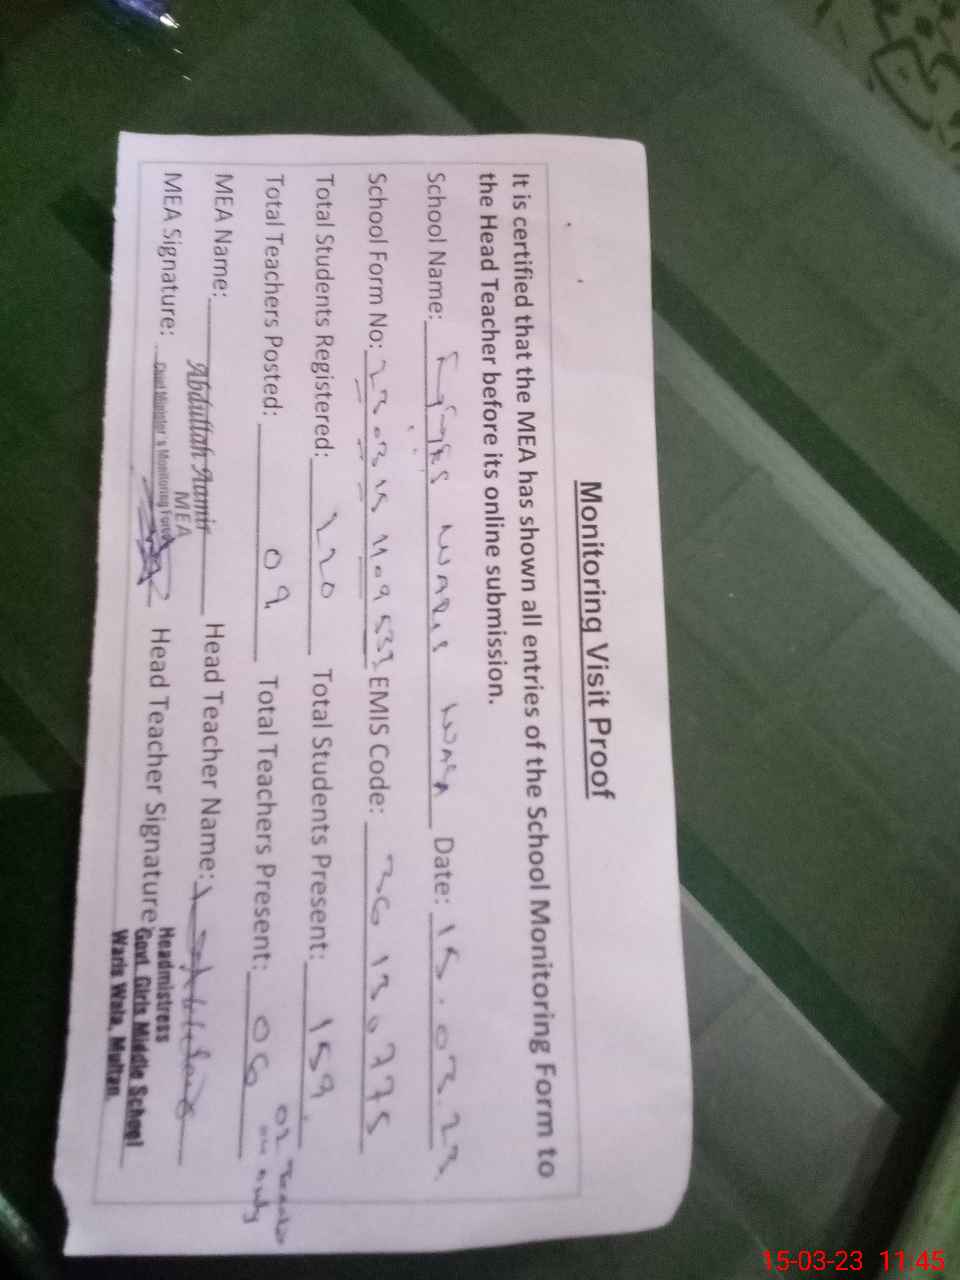 Monitoring Visit Proof
It is certified that the MEA has shown all entries of the School Monitoring Form to
the Head Teacher before its online submission.
School Name: WARIS WALA Date: 15.03.23
School Form No: EMIS Code: 36130775
Total Students Registered: 220 Total Students Present: 159
Total Teachers Posted: 09 Total Teachers Present: 06
02 Teacher on duty
MEA Name: Abdullah Aamir Head Teacher Name:
MEA
MEA Signature: Chief Minister's Monitoring Force Head Teacher Signature:
Headmistress
Govt. Girls Middle School
Waris Wala, Multan
15-03-23 11:45